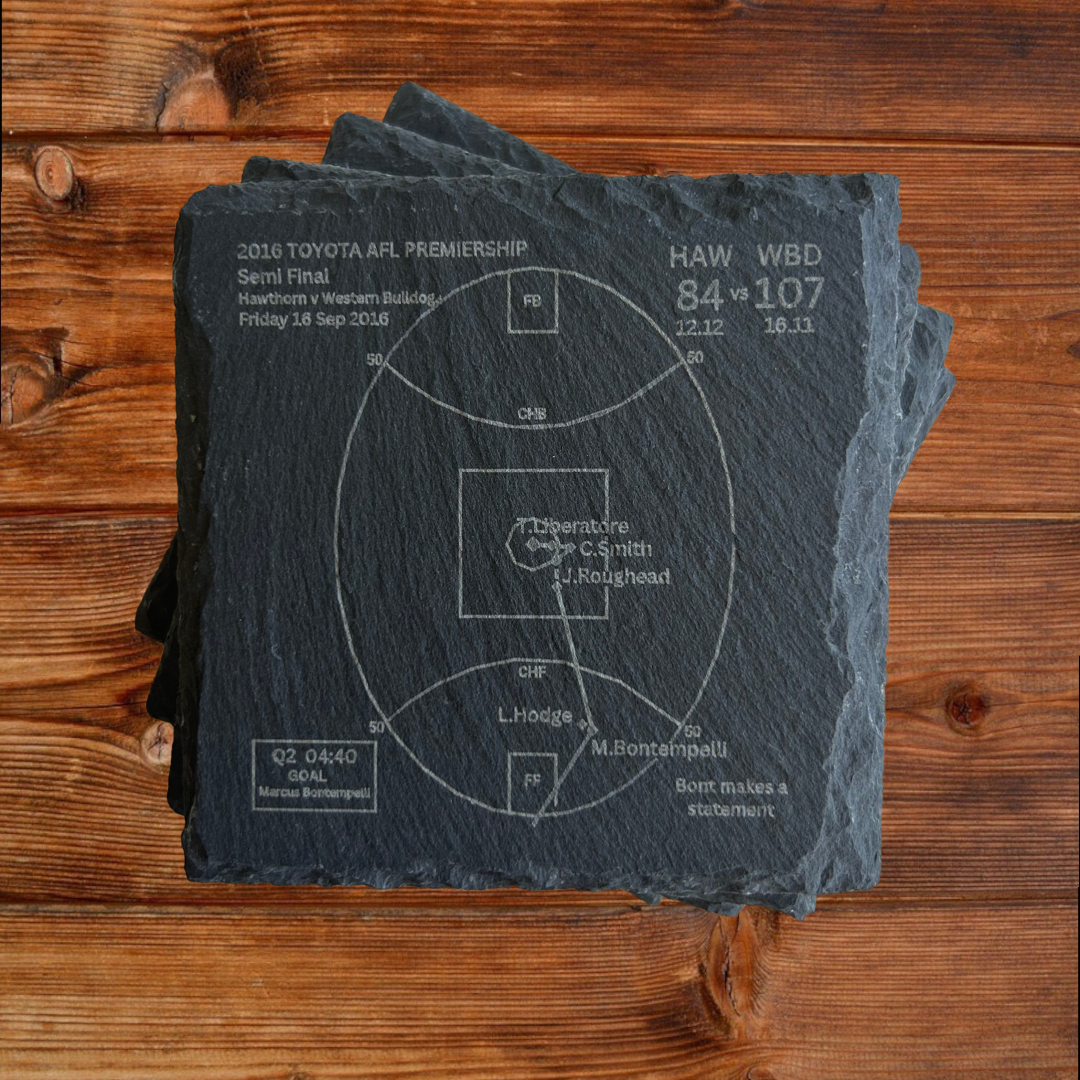 2016 TOYOTA AFL PREMIERSHIP
Semi Final
Hawthorn v Western Bulldogs
Friday 16 Sep 2016
HAW WBD
84 vs 107
12.12 16.11
FB
50 50
CHB
T.Liberatore
C.Smith
J.Roughead
CHF
L.Hodge
50 50
M.Bontempelli
Q2 04:40
GOAL
Marcus Bontempelli
FF
Bont makes a
statement